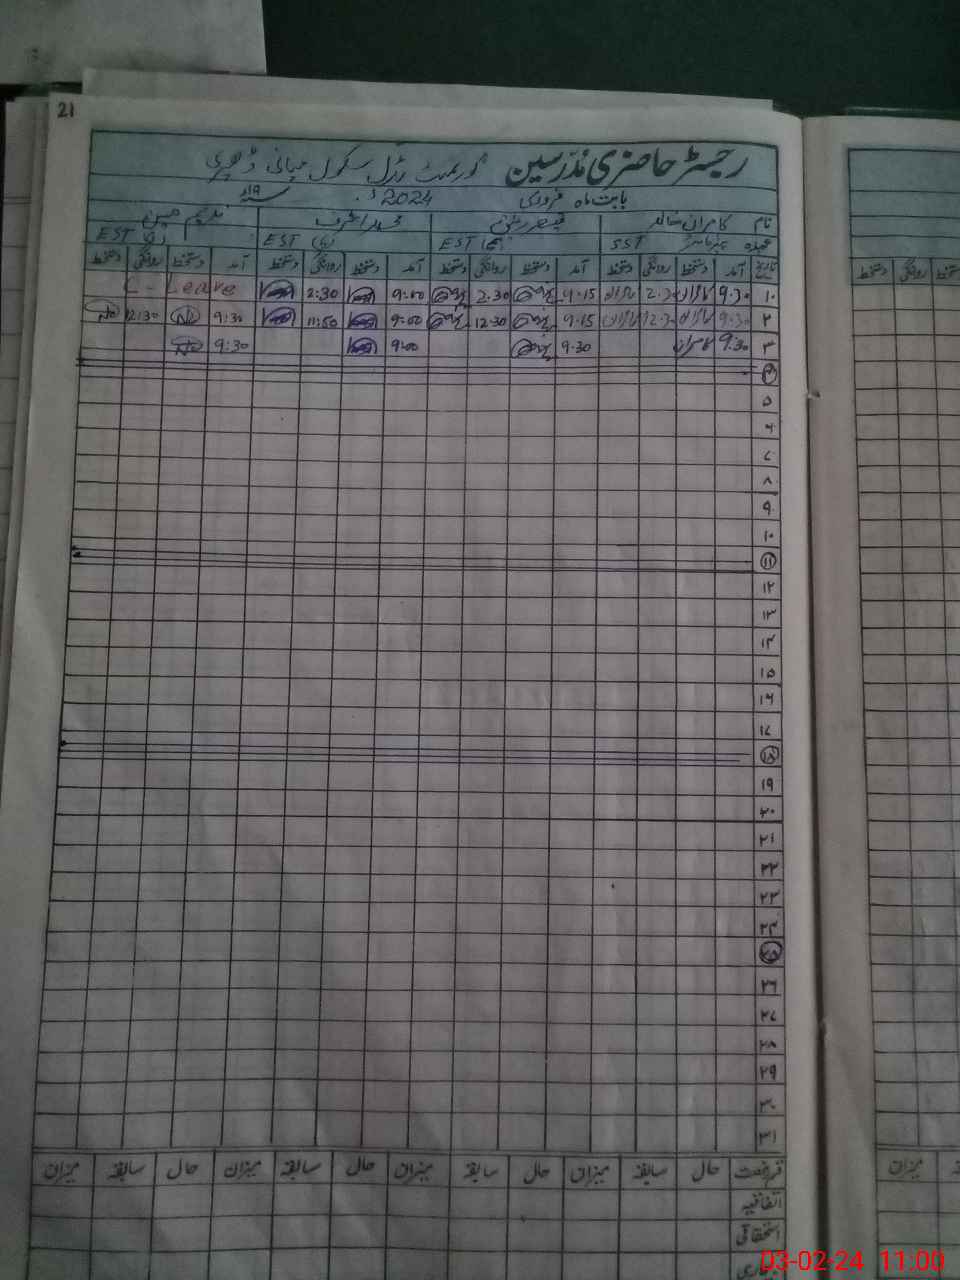 21
رجسٹر حاضری مدرسین گورنمنٹ مڈل سکول میانی ڈھیری
بابت ماہ فروری 2024ء
نام کامران خالد قیصر محمد اشرف ندیم حسین
عہدہ SST EST EST EST
تاریخ آمد دستخط روانگی دستخط آمد دستخط روانگی دستخط آمد دستخط روانگی دستخط آمد دستخط روانگی دستخط
۱ 9:30 کامران 2:30 کامران 9:15 2:30 9:00 2:30 C-Leave
۲ 9:30 کامران 12:30 کامران 9:15 12:30 9:00 11:50 9:30 12:30
۳ 9:30 کامران 9:30 9:00 9:30
۴
۵
۶
۷
۸
۹
۱۰
۱۱
۱۲
۱۳
۱۴
۱۵
۱۶
۱۷
۱۸
۱۹
۲۰
۲۱
۲۲
۲۳
۲۴
۲۵
۲۶
۲۷
۲۸
۲۹
۳۰
۳۱
قسم رخصت حال سابقہ میزان حال سابقہ میزان حال سابقہ میزان حال سابقہ میزان
اتفاقیہ
استحقاقی
03-02-24 11:00